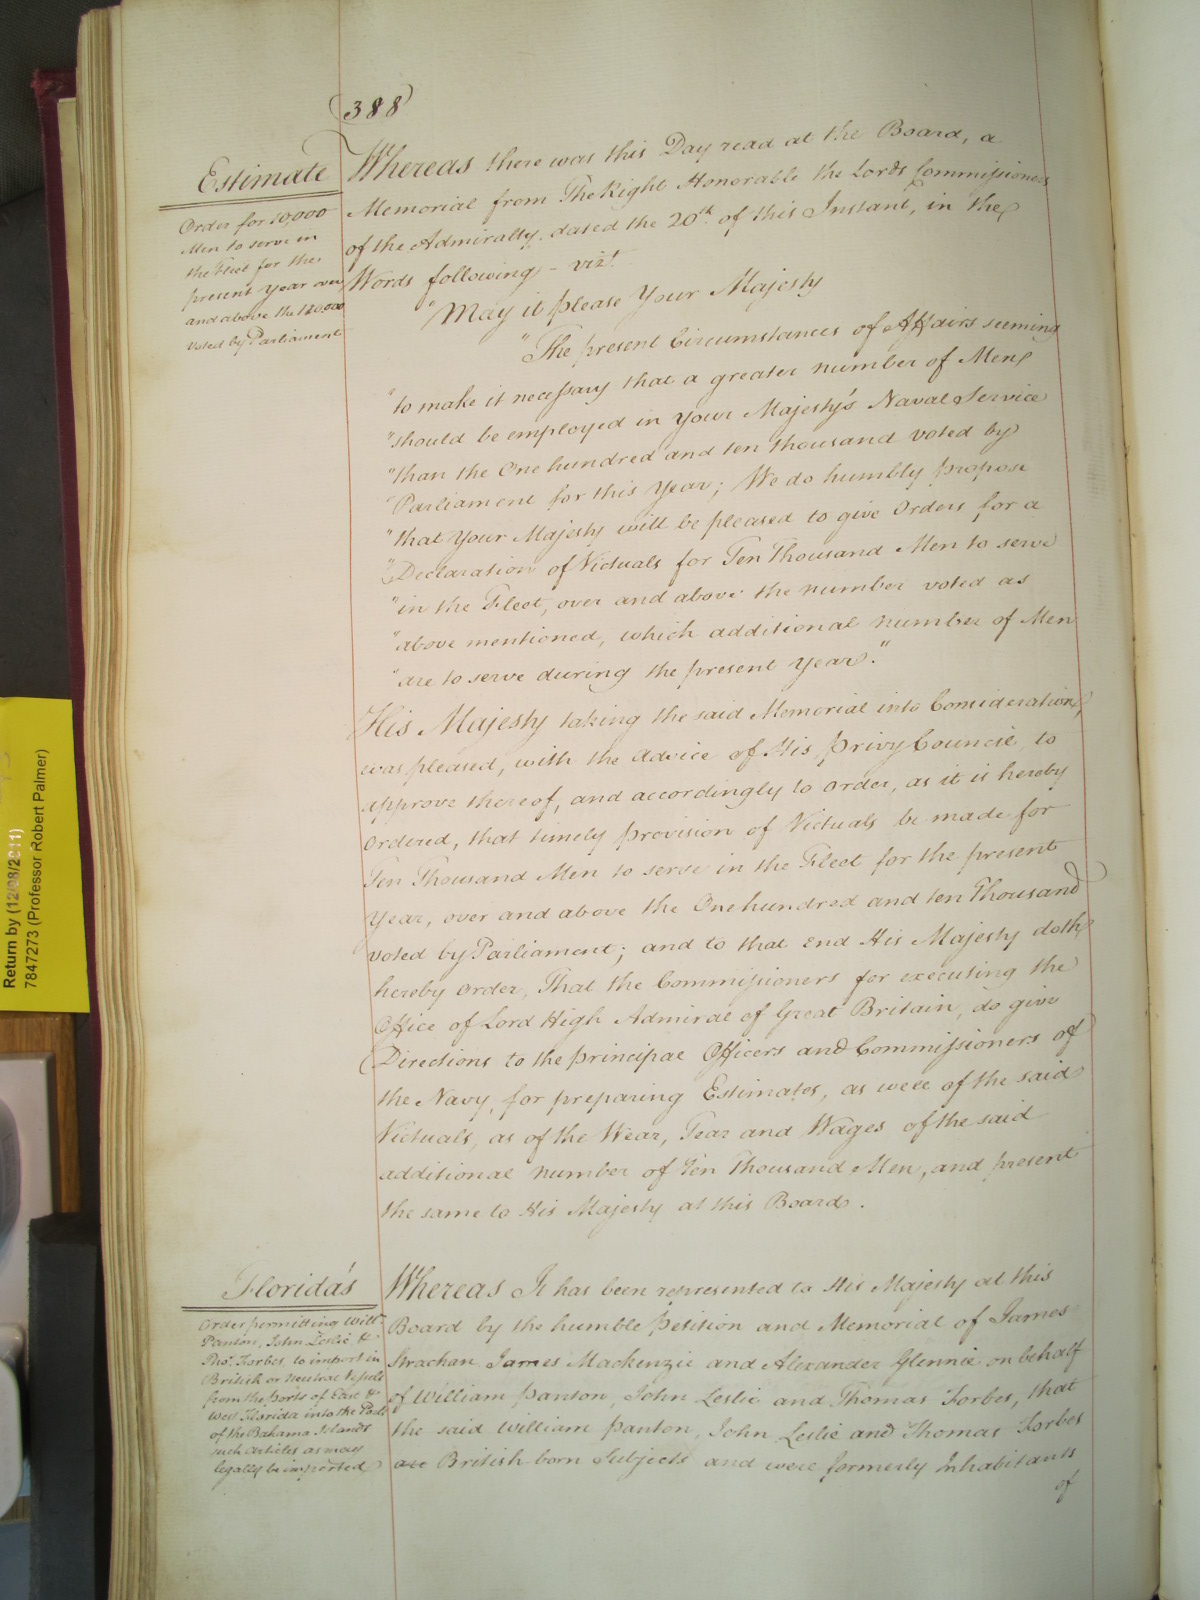 (388)
Estimate
Order for 10,000
Men to serve in
the Fleet for the
present Year over
and above the 110,000
voted by Parliament
Whereas there was this Day read at the Board, a
Memorial from The Right Honorable the Lords Commissioners
of the Admiralty, dated the 20th of this Instant, in the
Words following - vizt.
"May it please Your Majesty
"The present Circumstances of Affairs seeming
"to make it necessary that a greater number of Men
"should be employed in Your Majesty's Naval Service
"than the One hundred and ten thousand voted by
"Parliament for this Year; We do humbly propose
"that Your Majesty will be pleased to give Orders for a
"Declaration of Victuals for Ten Thousand Men to serve
"in the Fleet, over and above the number voted as
"above mentioned, which additional number of Men
"are to serve during the present Year."
His Majesty taking the said Memorial into Consideration,
was pleased, with the Advice of His Privy Council, to
approve thereof, and accordingly to Order, as it is hereby
Ordered, that timely provision of Victuals be made for
Ten Thousand Men to serve in the Fleet for the present
Year, over and above the One hundred and ten Thousand
voted by Parliament; and to that end His Majesty doth
hereby Order, That the Commissioners for executing the
Office of Lord High Admiral of Great Britain, do give
Directions to the principal Officers and Commissioners of
the Navy, for preparing Estimates, as well of the said
Victuals, as of the Wear, Tear and Wages of the said
additional number of Ten Thousand Men, and present
the same to His Majesty at this Board.
Florida's
Order permitting Willm.
Panton, John Leslie &
Thos. Forbes, to import in
British or Neutral Vessels
from the Ports of East &
West Florida into the Ports
of the Bahama Islands
such Articles as may
legally be imported
Whereas It has been represented to His Majesty at this
Board by the humble Petition and Memorial of James
Strachan, James Mackenzie and Alexander Glennie on behalf
of William Panton, John Leslie and Thomas Forbes, that
the said William Panton, John Leslie and Thomas Forbes
are British born Subjects and were formerly Inhabitants
of
Return by (12/08/2011)
7847273 (Professor Robert Palmer)